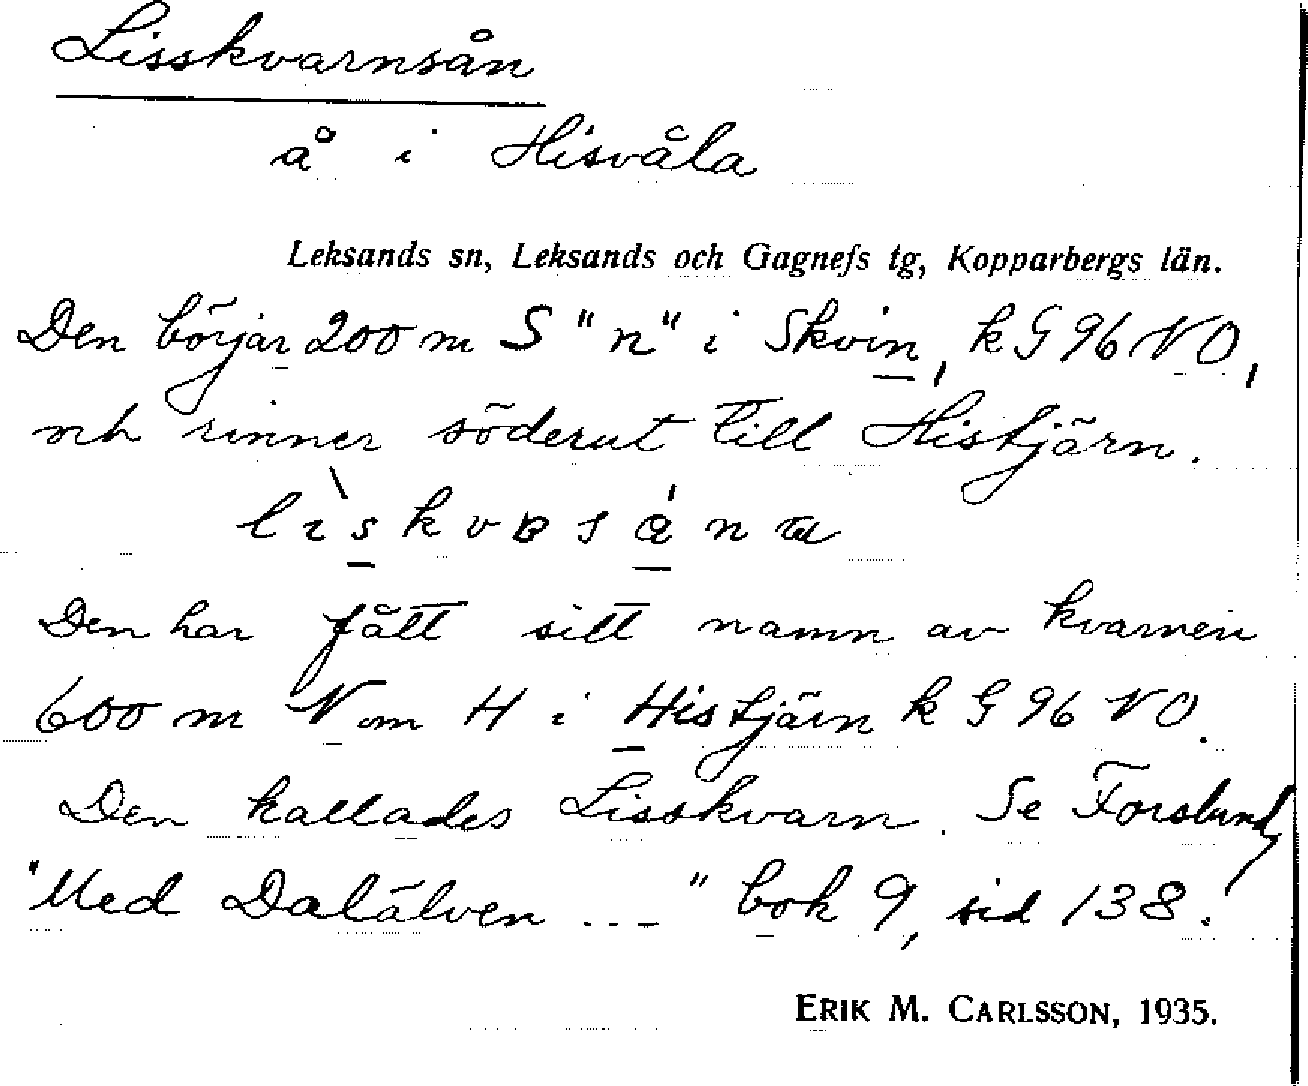 Lisskvarnsån
å i Hisvåla
Leksands sn, Leksands och Gagnefs tg, Kopparbergs län.
Den börjar 200 m S "n" i Skvin, k G 96 NO,
och rinner söderut till Histjärn.
Den har fått sitt namn av kvarnen
600 m N om H i Histjärn k G 96 NO.
Den kallades Lisskvarn. Se Forslund,
"Med Dalälven ... " bok 9, sid 138.
ERIK M. CARLSSON, 1935.